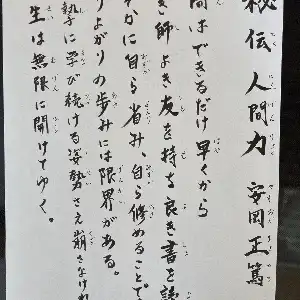 秘伝 人間力 安岡正篤
間はできるだけ早くから
き師よき友を持ち良き書を読
かに自ら省み、自ら修めることで
りよがりの歩みには限界がある。
摯に学び続ける姿勢さえ崩さなけれ
生は無限に開けてゆく。